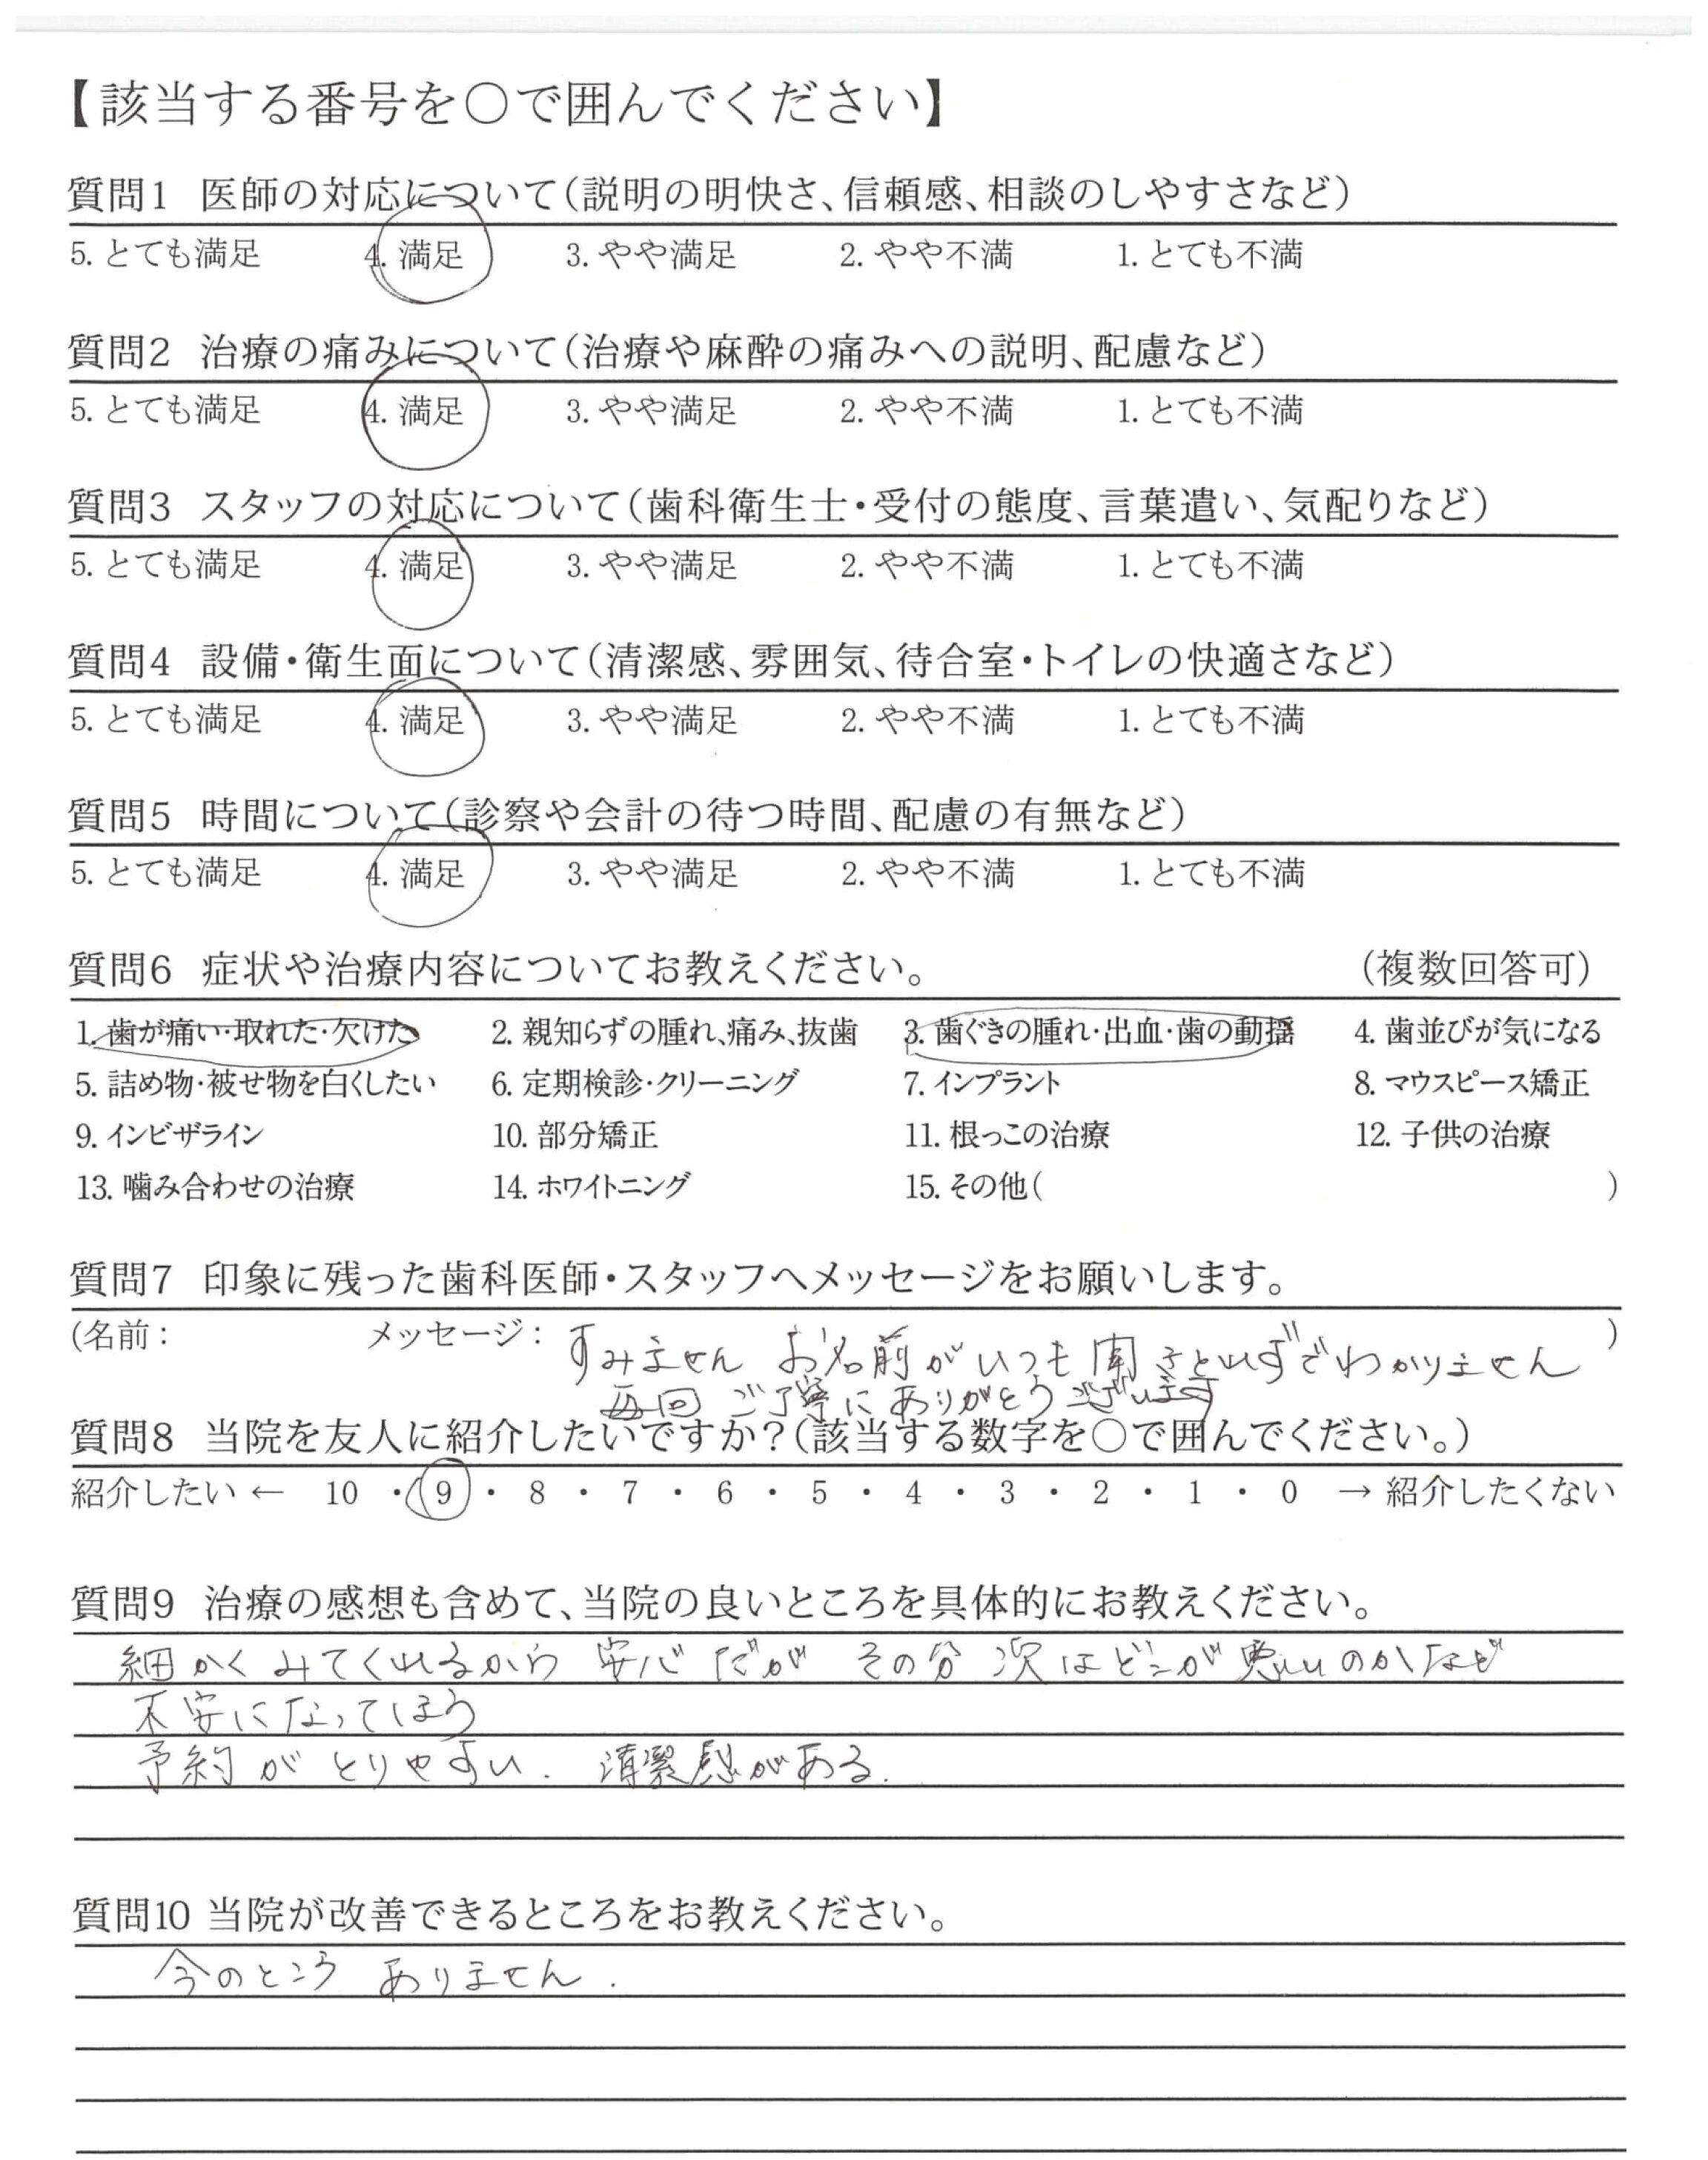 【該当する番号を○で囲んでください】
質問1 医師の対応について(説明の明快さ、信頼感、相談のしやすさなど)
5. とても満足 4. 満足 3. やや満足 2. やや不満 1. とても不満
質問2 治療の痛みについて(治療や麻酔の痛みへの説明、配慮など)
5. とても満足 4. 満足 3. やや満足 2. やや不満 1. とても不満
質問3 スタッフの対応について(歯科衛生士・受付の態度、言葉遣い、気配りなど)
5. とても満足 4. 満足 3. やや満足 2. やや不満 1. とても不満
質問4 設備・衛生面について(清潔感、雰囲気、待合室・トイレの快適さなど)
5. とても満足 4. 満足 3. やや満足 2. やや不満 1. とても不満
質問5 時間について(診察や会計の待つ時間、配慮の有無など)
5. とても満足 4. 満足 3. やや満足 2. やや不満 1. とても不満
質問6 症状や治療内容についてお教えください。 (複数回答可)
1. 歯が痛い・取れた・欠けた 2. 親知らずの腫れ、痛み、抜歯 3. 歯ぐきの腫れ・出血・歯の動揺 4. 歯並びが気になる
5. 詰め物・被せ物を白くしたい 6. 定期検診・クリーニング 7. インプラント 8. マウスピース矯正
9. インビザライン 10. 部分矯正 11. 根っこの治療 12. 子供の治療
13. 噛み合わせの治療 14. ホワイトニング 15. その他( )
質問7 印象に残った歯科医師・スタッフへメッセージをお願いします。
(名前: メッセージ: すみません お名前がいつも聞きとれずでわかりません )
毎回 ご丁寧にありがとうございます
質問8 当院を友人に紹介したいですか?(該当する数字を○で囲んでください。)
紹介したい ← 10 ・ 9 ・ 8 ・ 7 ・ 6 ・ 5 ・ 4 ・ 3 ・ 2 ・ 1 ・ 0 → 紹介したくない
質問9 治療の感想も含めて、当院の良いところを具体的にお教えください。
細かくみてくれるから 安心だが その分 次はどこが悪いのかなど
不安になってしまう
予約がとりやすい. 清潔感がある.
質問10 当院が改善できるところをお教えください。
今のところ ありません.